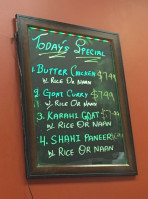 Today's Special
1. Butter Chicken $7.99
w/ Rice Or Naan
2. Goat Curry $7.99
w/ Rice Or Naan
3. Karahi Goat $7.99
w/ Rice Or Naan
4. Shahi Paneer
w/ Rice Or Naan